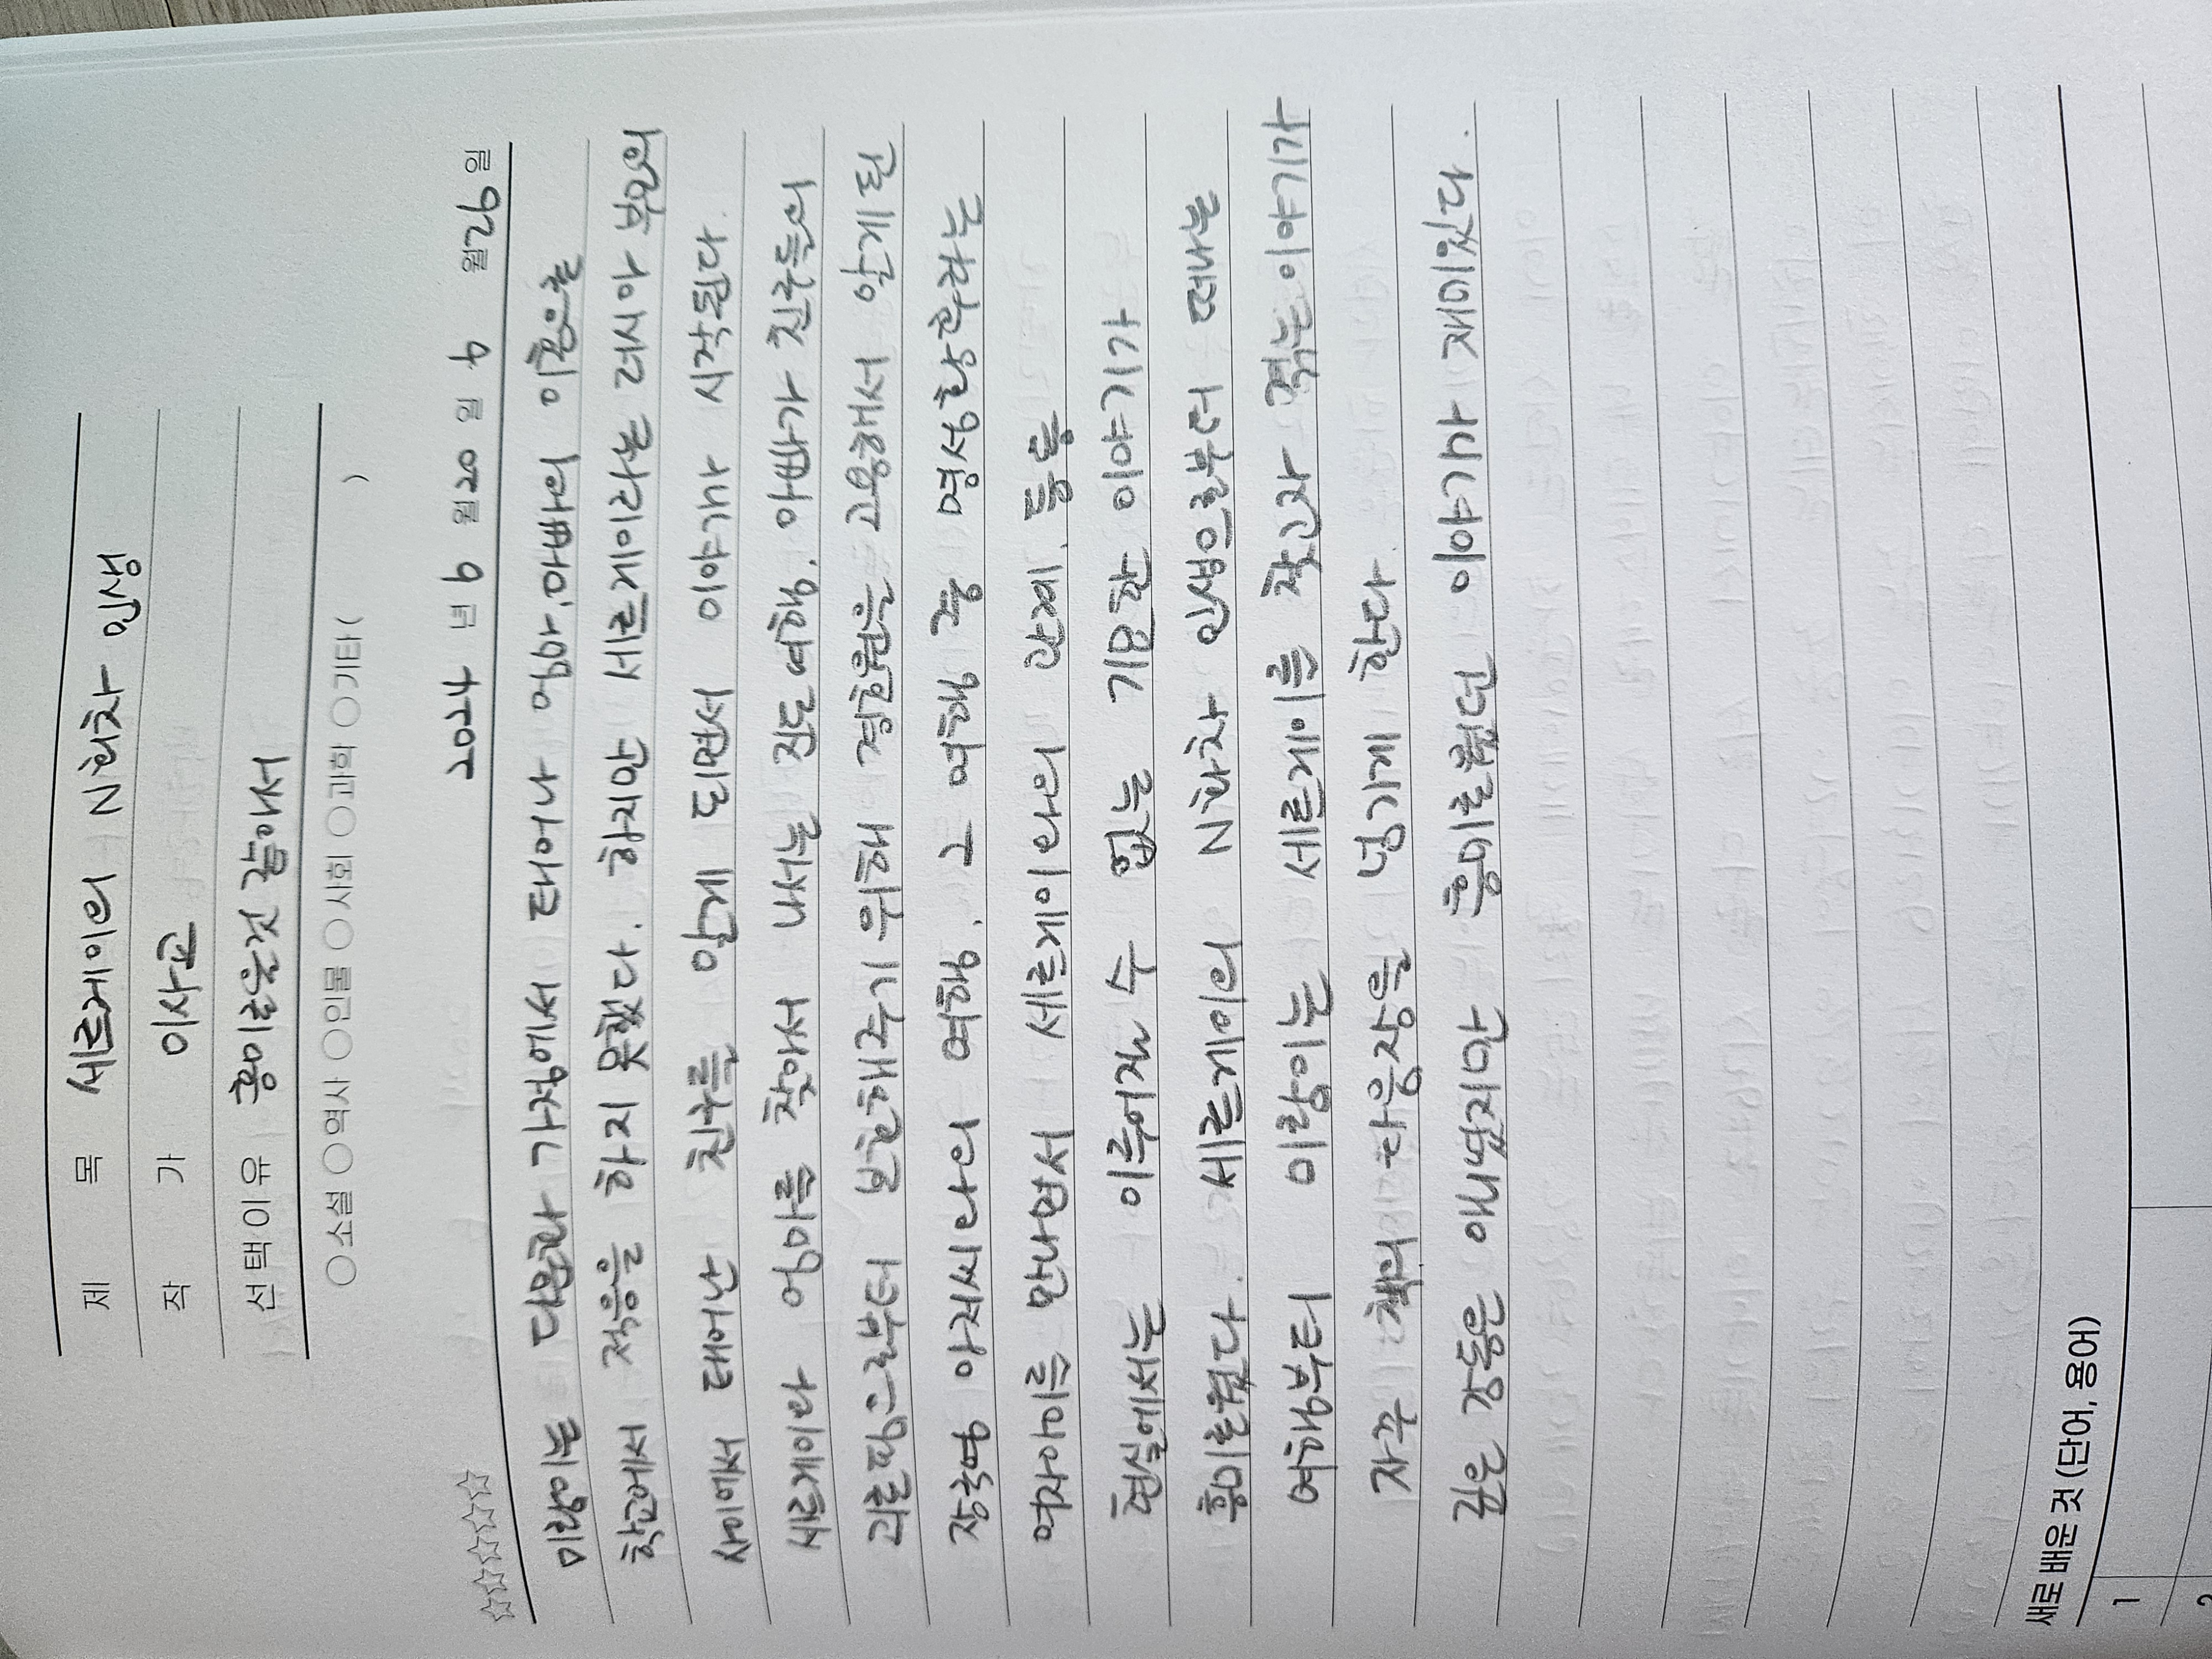 제 목 세르게이의 N회차 인생
작 가 이사교
선택이유 흥미로울것 같아서
○소설 ○역사 ○인물 ○사회 ○과학 ○기타( )
☆☆☆☆☆ 2024 년 6 월 20 일 6 월 26 일
미랑이는 다문화 가정에서 태어나 엄마, 아빠의 이혼으로
학교에서 적응을 하지 못했다. 하지만 세르게이라는 러시아 부모의
사이에서 태어난 친구를 알게 되면서 이야기가 시작된다.
세르게이와 엄마를 찾아서 나서는 진도여행. 아빠가 친구들의
괴롭핌으로부터 보호해주기 위해 경호원을 고용해서 알게 된
장국영 아저씨와의 여행. 그 여행 중 명성황후라는
여자아이를 만나면서 세르게이와의 관계. 등등
현실에서는 이루어질 수 없는 기묘한 이야기가
흥미로웠다. 세르게이의 N화차 인생으로부터 떠나는
여행부터 미랑이는 세르게이를 찾고자 겪는 이야기가
자꾸 책의 다음장을 넘기게 한다.
깊은 감동은 아니었지만 흥미로웠던 이야기가 재미있다.
새로 배운 것 (단어, 용어)
1
2